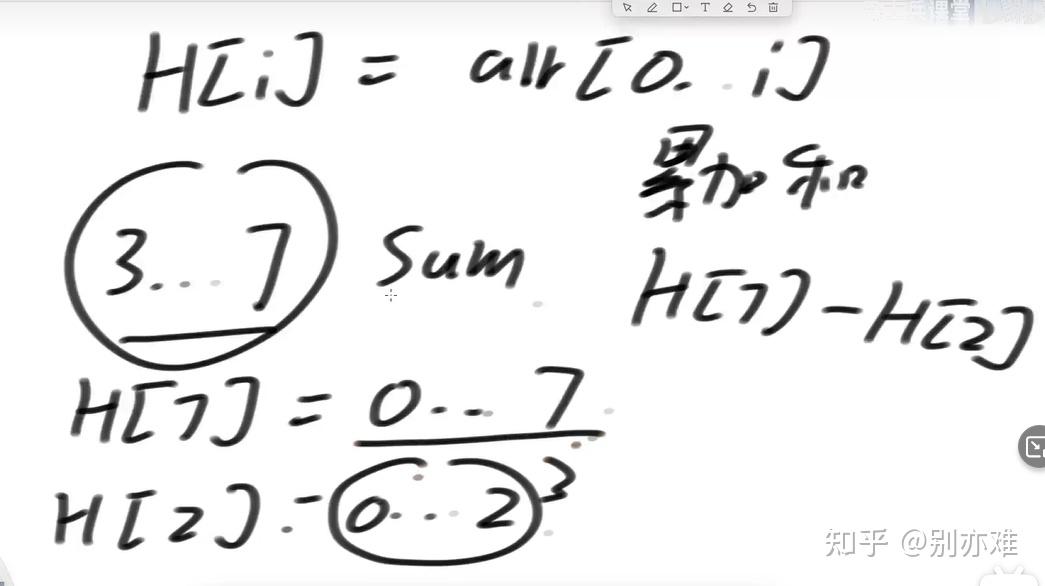 H[i] = arr[0..i]
累加和
3...7 Sum
H[7]-H[2]
H[7] = 0...7
H[2] = 0...2 3
知乎 @别亦难